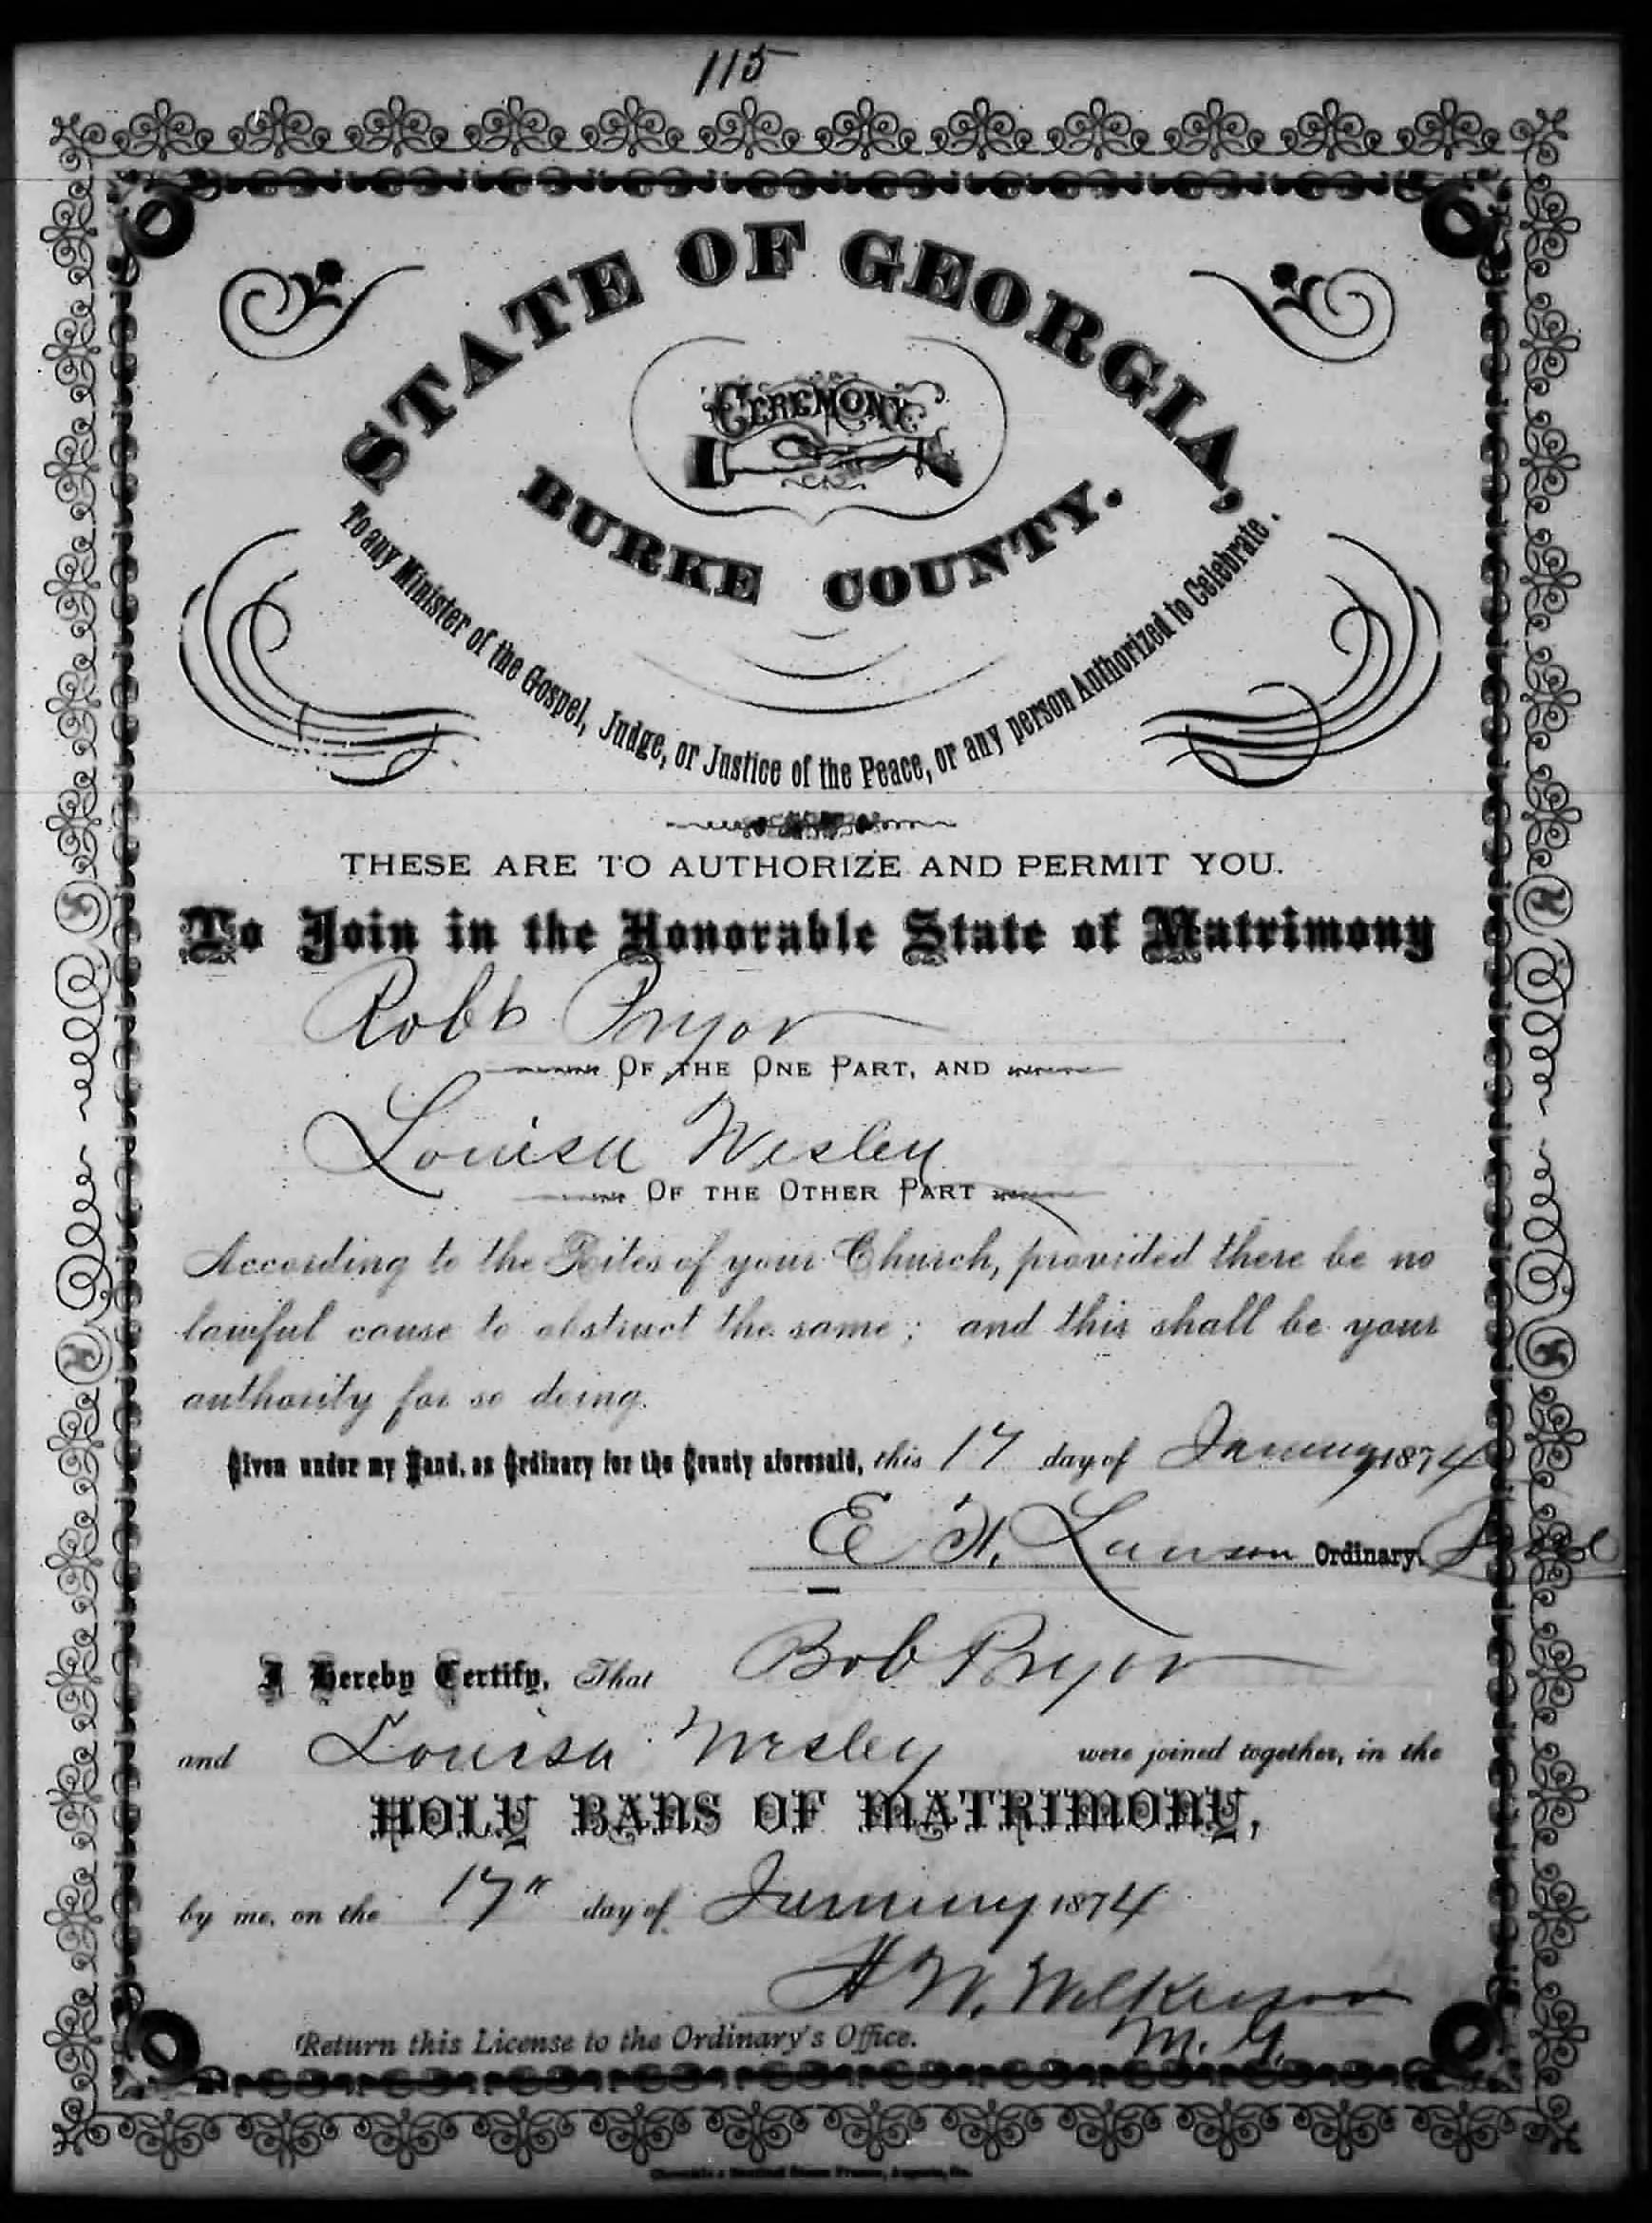 115
STATE OF GEORGIA,
CEREMONY
BURKE COUNTY.
To any Minister of the Gospel, Judge, or Justice of the Peace, or any person Authorized to Celebrate.
THESE ARE TO AUTHORIZE AND PERMIT YOU.
To Join in the Honorable State of Matrimony
Robt Pryor
OF THE ONE PART, AND
Louisa Wesley
OF THE OTHER PART
According to the Rites of your Church, provided there be no
lawful cause to obstruct the same; and this shall be your
authority for so doing.
Given under my Hand, as Ordinary for the County aforesaid, this 17 day of January 1874
E. H. Lawson Ordinary.
I Hereby Certify, That Bob Pryor
and Louisa Wesley were joined together, in the
HOLY BANS OF MATRIMONY,
by me, on the 17th day of January 1874
H W. Wilkerson
M. G.
Return this License to the Ordinary's Office.